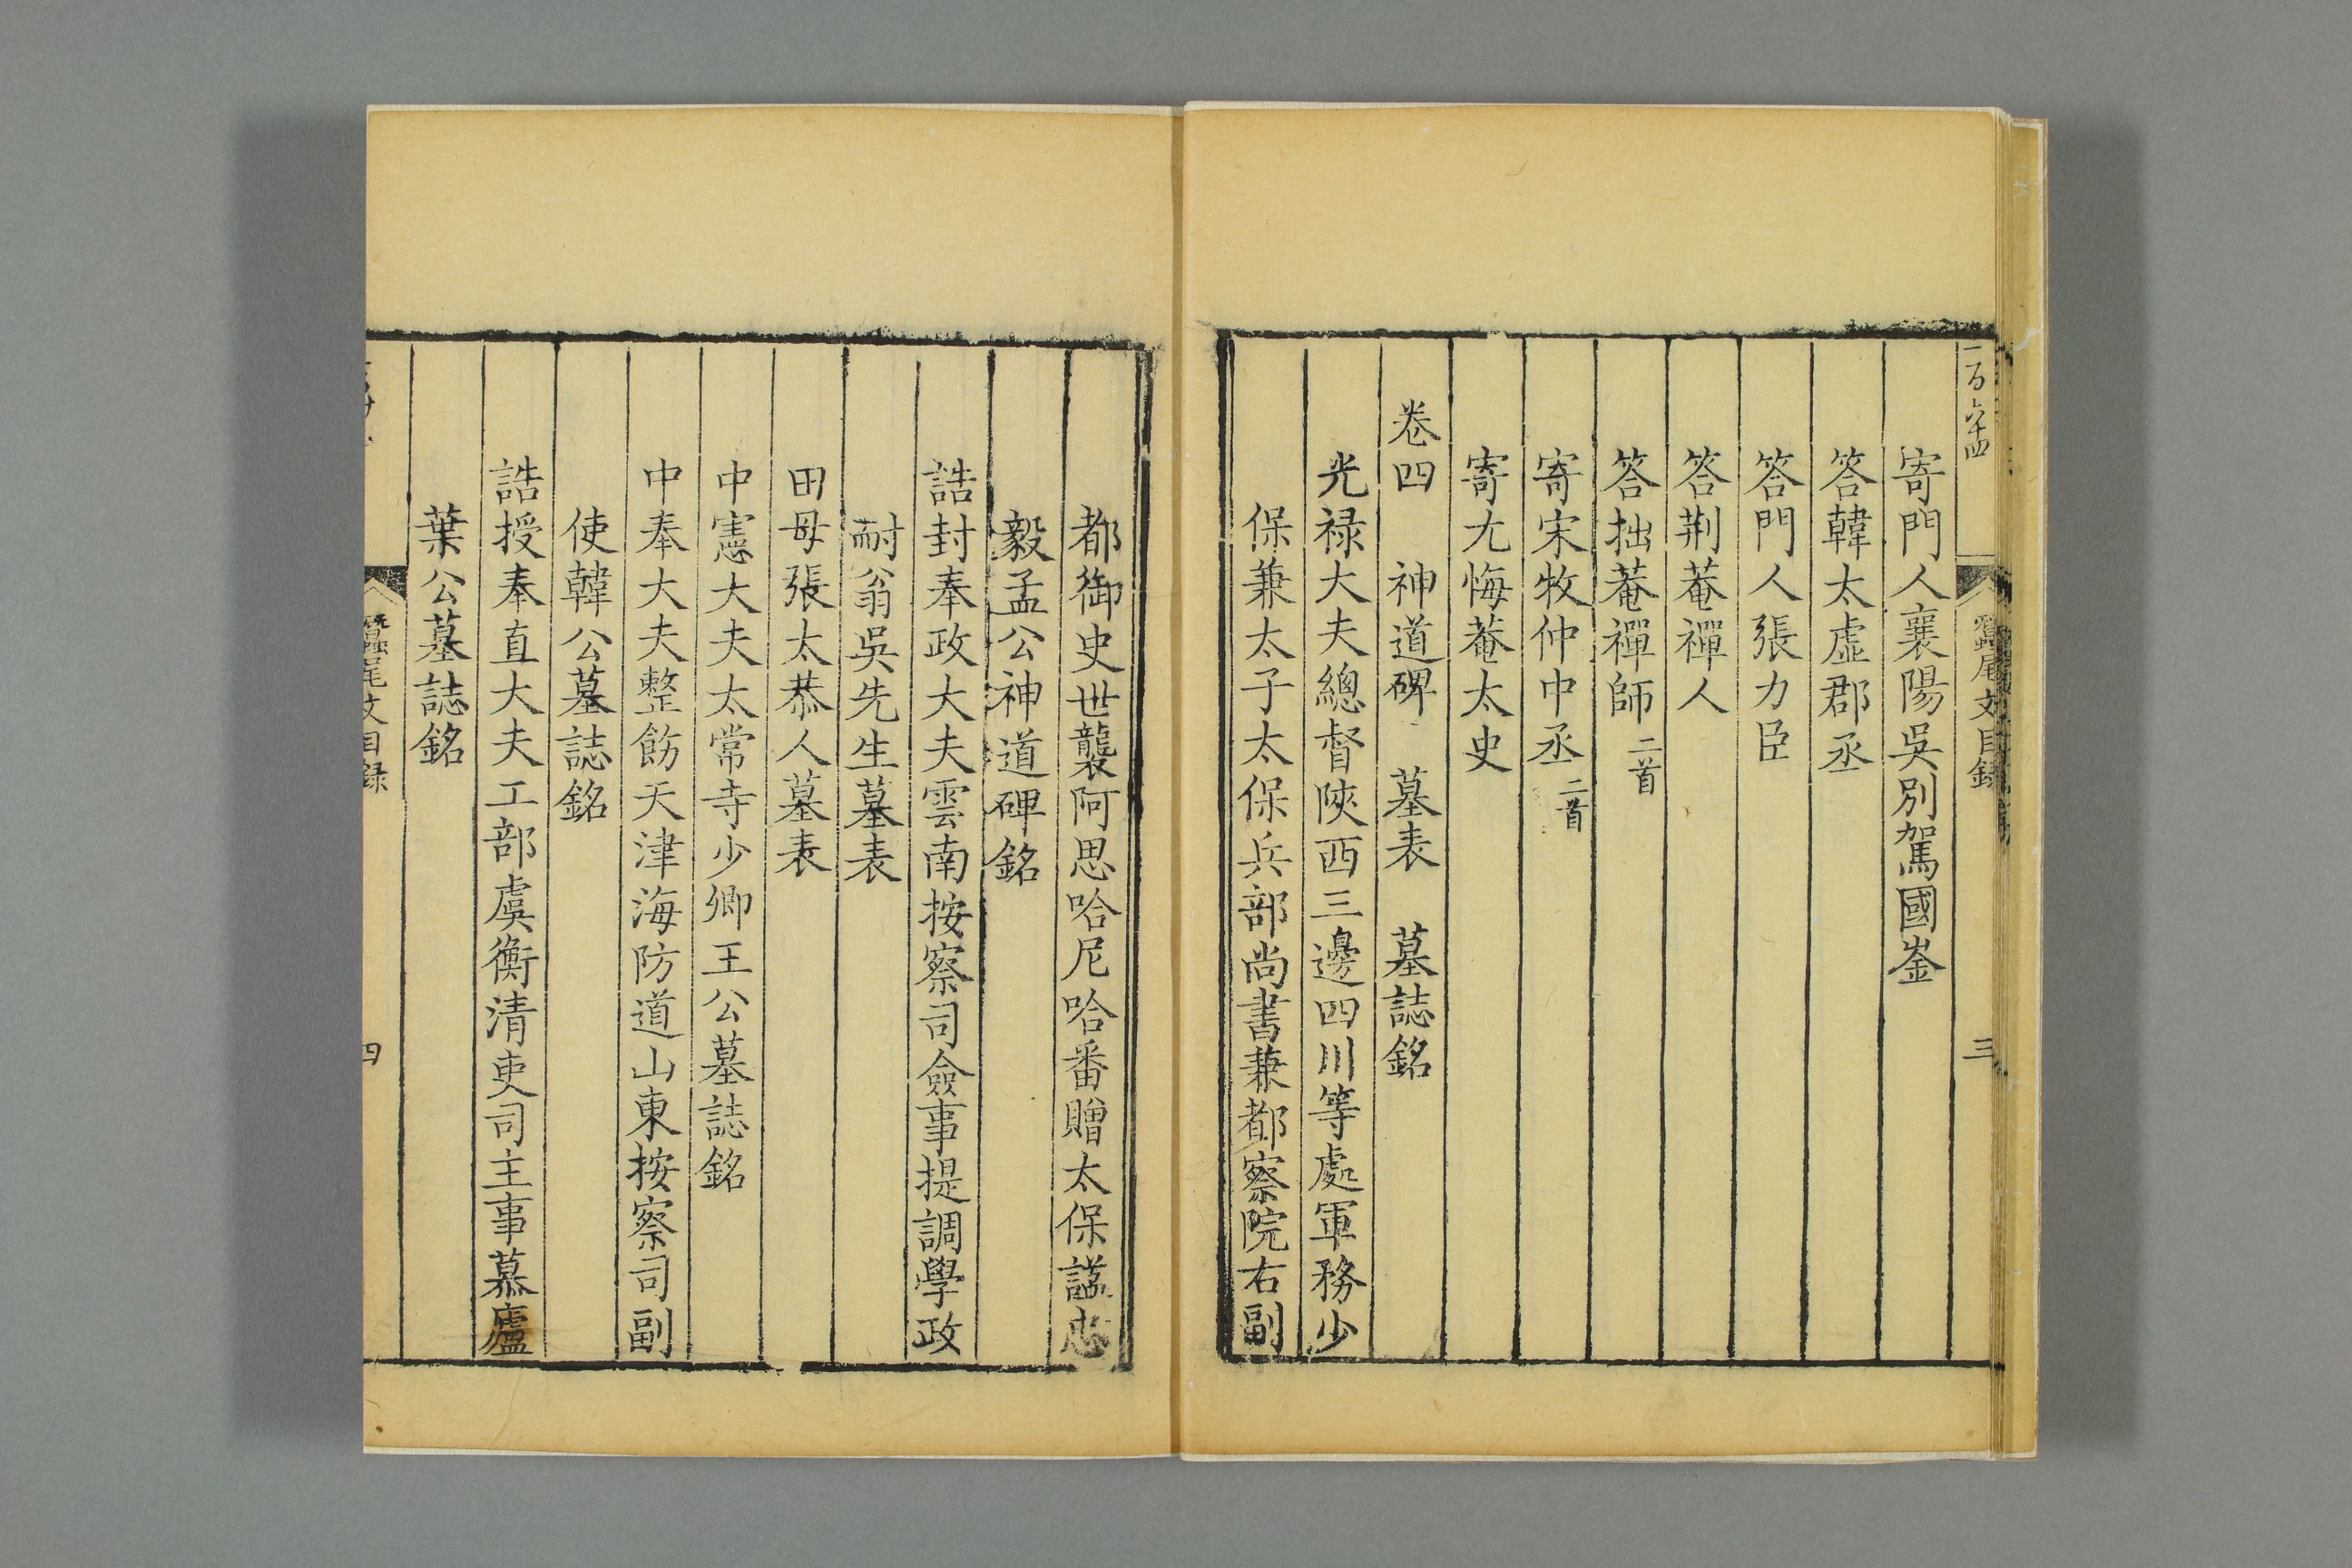 寄門人襄陽吳別駕國崟
答韓太虛郡丞
答門人張力臣
答荆菴禪人
答拙菴禪師二首
寄宋牧仲中丞二首
寄尤悔菴太史
卷四 神道碑 墓表 墓誌銘
光祿大夫總督陝西三邊四川等處軍務少
保兼太子太保兵部尚書兼都察院右副
都御史世襲阿思哈尼哈番贈太保諡忠
毅孟公神道碑銘
誥封奉政大夫雲南按察司僉事提調學政
耐翁吳先生墓表
田母張太恭人墓表
中憲大夫太常寺少卿王公墓誌銘
中奉大夫整飭天津海防道山東按察司副
使韓公墓誌銘
誥授奉直大夫工部虞衡清吏司主事慕廬
葉公墓誌銘
蠶尾文目錄
三
蠶尾文目録
四